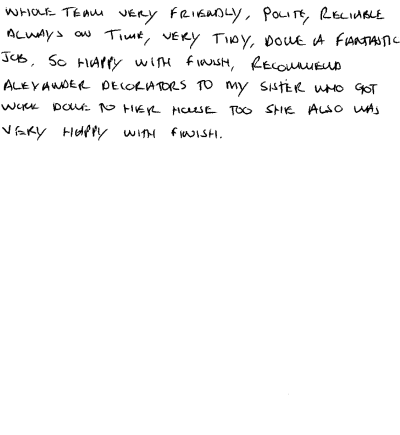 WHOLE TEAM VERY FRIENDLY, POLITE, RELIABLE
ALWAYS ON TIME, VERY TIDY, DONE A FANTASTIC
JOB. SO HAPPY WITH FINISH, RECOMMEND
ALEXANDER DECORATORS TO MY SISTER WHO GOT
WORK DONE TO HER HOUSE TOO SHE ALSO WAS
VERY HAPPY WITH FINISH.